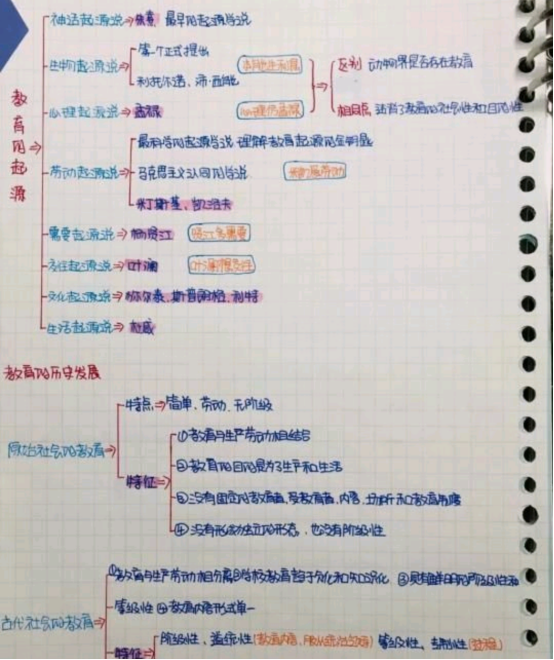 教育的起源⇒
神话起源说⇒ 最早的起源学说
生物起源说⇒ 第一个正式提出
利托尔诺、沛·西能
本能生利沛
心理起源说⇒孟禄
心理仿孟禄
区别 动物界是否存在教育
相同点 否认了教育的社会性和目的性
劳动起源说⇒ 最科学的起源学说 理解教育起源的金钥匙
马克思主义认同的学说
米丁斯基、凯洛夫
需要起源说⇒杨贤江
贤江多需要
交往起源说⇒叶澜
文化起源说⇒狄尔泰、斯普朗格、利特
生活起源说⇒杜威
教育的历史发展
原始社会的教育⇒
特点⇒简单、劳动、无阶级
特征⇒
①教育与生产劳动相结合
②教育的目的是为了生产和生活
③没有固定的教育者、受教育者、内容、场所和教育制度
④没有形成独立的形态，也没有阶级性
古代社会的教育⇒
①教育与生产劳动相分离②学校教育趋于分化和知识化 ③具有鲜明的阶级性和
等级性 ④教育内容形式单一
特征⇒
阶级性、道统性 等级性、专制性